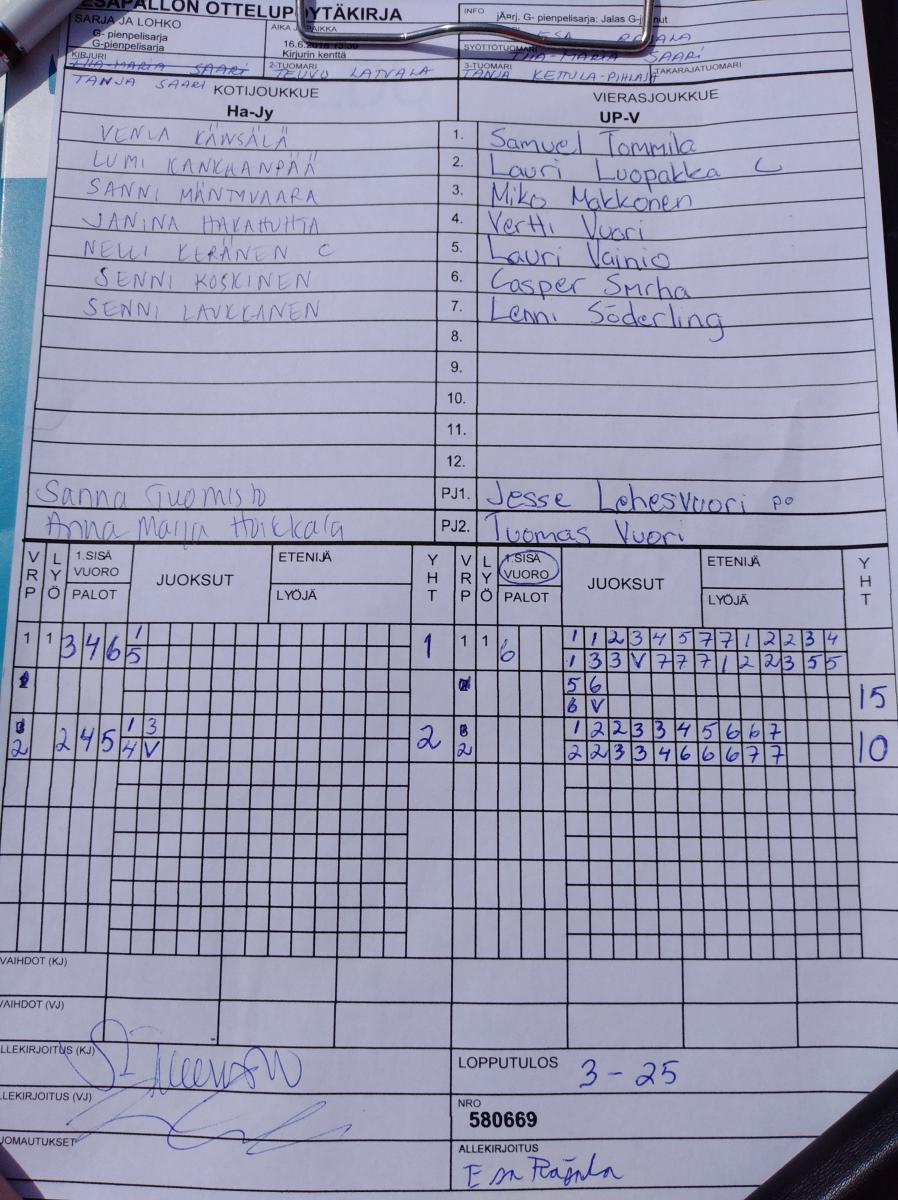 ESÄPALLON OTTELUPÖYTÄKIRJA
SARJA JA LOHKO
G- pienpelisarja
G-pienpelisarja
AIKA JA PAIKKA
16.6.2018
Kirjurin kenttä
INFO jÄ¤rj. G- pienpelisarja: Jalas G-j nut
ESA RAJALA
KIRJURI
TANJA SAARI
2-TUOMARI
TEUVO LATVALA
SYÖTTÖTUOMARI
3-TUOMARI
TANJA KETULA-PIHLAJA
TAKARAJATUOMARI
KOTIJOUKKUE VIERASJOUKKUE
Ha-Jy UP-V
VENLA KÄNSÄLÄ 1. Samuel Tommila
LUMI KANKAANPÄÄ 2. Lauri Luopakka C
SANNI MÄNTYVAARA 3. Miko Makkonen
JANINA HAKAHUHTA 4. Vertti Vuori
NELLI KERÄNEN C 5. Lauri Vainio
SENNI KOSKINEN 6. Casper Smrha
SENNI LAUKKANEN 7. Lenni Söderling
8.
9.
10.
11.
12.
Sanna Tuomisto PJ1. Jesse Lehesvuori po
Anna Maija PJ2. Tuomas Vuori
VRP LYÖ 1.SISÄ VUORO PALOT JUOKSUT ETENIJÄ LYÖJÄ YHT VRP LYÖ 1.SISÄ VUORO PALOT JUOKSUT ETENIJÄ LYÖJÄ YHT
1 1 3 4 6 1 1 1 1 6 1 1 2 3 4 5 7 7 1 2 2 3 4
5 1 3 3 V 7 7 7 1 2 2 3 5 5
5 6 15
6 V
2 2 4 5 1 3 2 2 1 2 2 3 3 4 5 6 6 7 10
4 V 2 2 3 3 4 6 6 6 7 7
VAIHDOT (KJ)
VAIHDOT (VJ)
LLEKIRJOITUS (KJ)
LOPPUTULOS 3 - 25
LLEKIRJOITUS (VJ)
NRO
580669
UOMAUTUKSET
ALLEKIRJOITUS
Esa Rajala